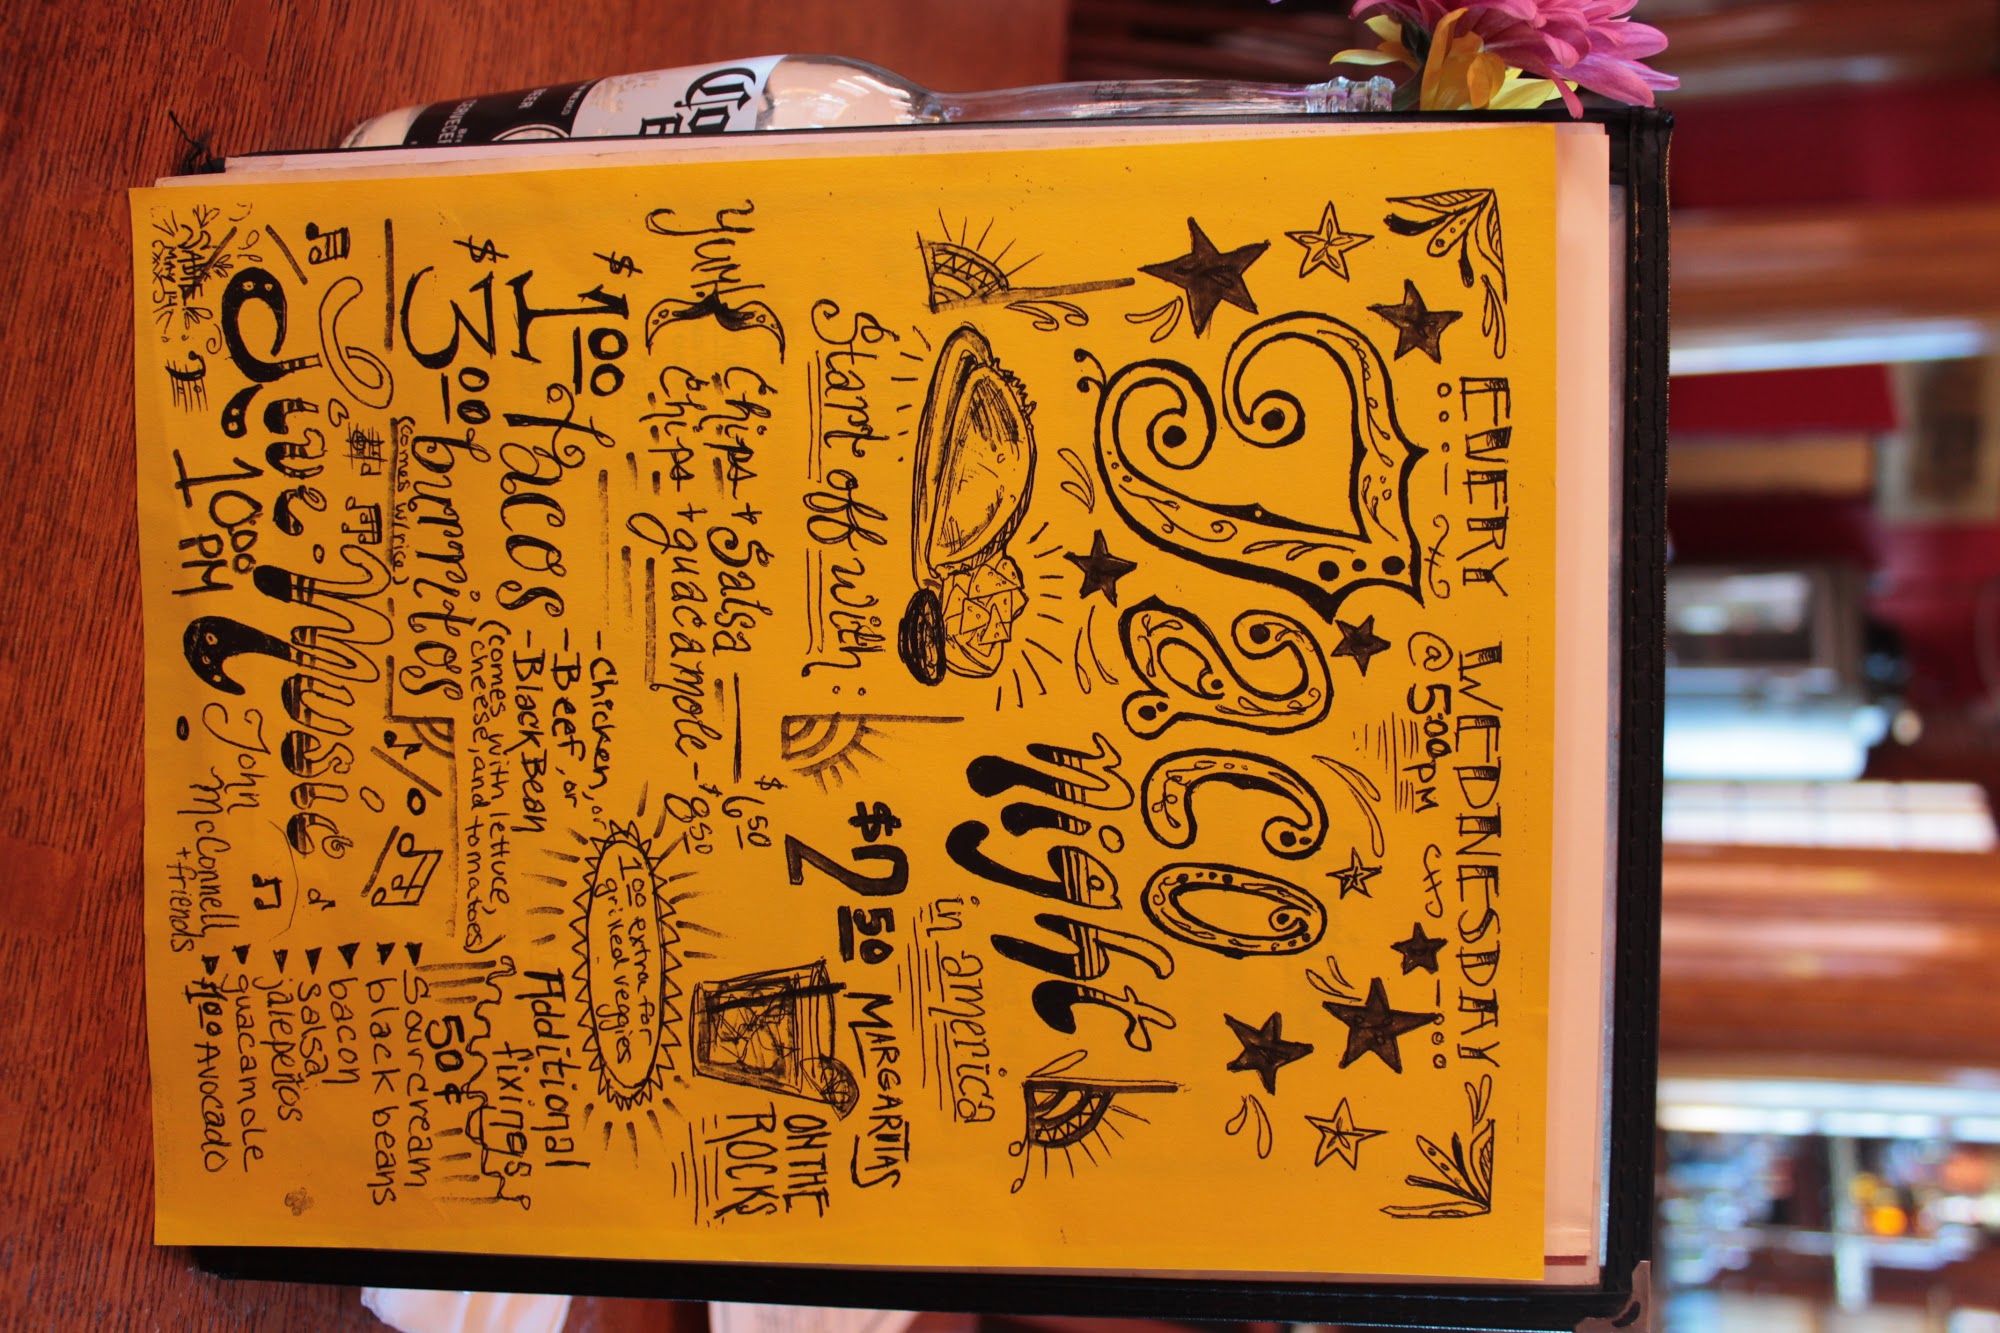 EVERY WEDNESDAY
@ 5:00PM
Taco
night
in america
$2.50 MARGARITAS
ON THE
ROCKS
Start off with:
YUM!
Chips + Salsa $6.50
Chips + guacamole - $8.50
$1.00 Tacos
- Chicken, or
- Beef, or
- Black Bean
(comes with lettuce,
cheese, and tomatoes)
1.00 extra for
grilled veggies
$3.00 burritos
(comes w/rice)
Additional
fixings
50¢
sour cream
black beans
bacon
salsa
jalepeños
guacamole
$1.00 Avocado
Live Music
10:00
PM
John
McConnell
+ friends
Coro
BEER
CERVECER